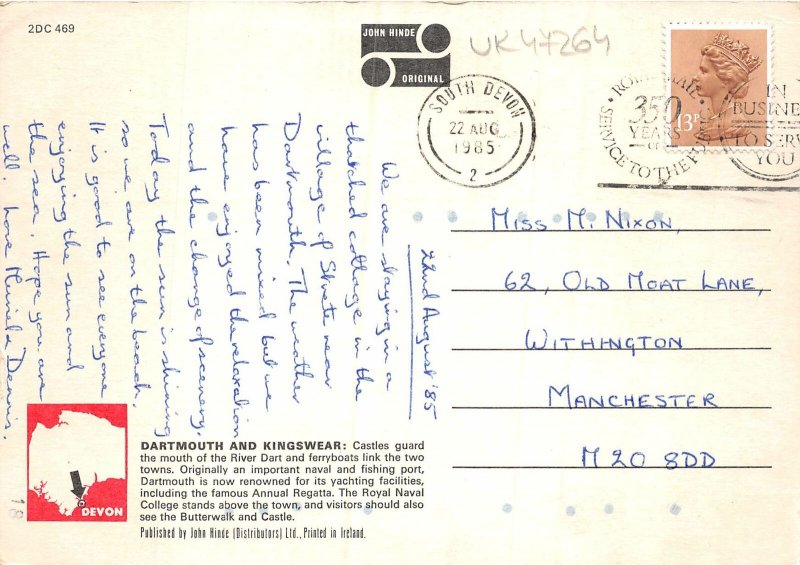 2DC 469
JOHN HINDE
ORIGINAL
UK47264
SOUTH DEVON
22 AUG
1985
2
ROYAL MAIL
350
YEARS
OF
SERVICE TO THE
IN
BUSINE
TO SERV
YOU
13P
22nd August '85
We are staying in a
thatched cottage in the
village of Strete near
Dartmouth. The weather
has been mixed but we
have enjoyed the relaxation
and the change of scenery.
Today the sun is shining
so we are on the beach.
It is good to see everyone
enjoying the sun and
the sea. Hope you are
well. Love Dennis.
Miss M. Nixon,
62, Old Moat Lane,
Withington
Manchester
M20 8DD
DEVON
18
DARTMOUTH AND KINGSWEAR: Castles guard
the mouth of the River Dart and ferryboats link the two
towns. Originally an important naval and fishing port,
Dartmouth is now renowned for its yachting facilities,
including the famous Annual Regatta. The Royal Naval
College stands above the town, and visitors should also
see the Butterwalk and Castle.
Published by John Hinde (Distributors) Ltd., Printed in Ireland.